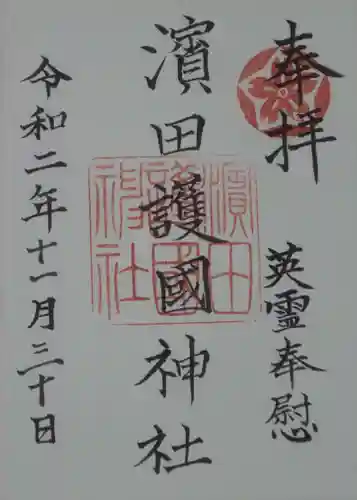 奉拝
英霊奉慰
濱田護國神社
濱田
護國
神社
令和二年十一月三十日